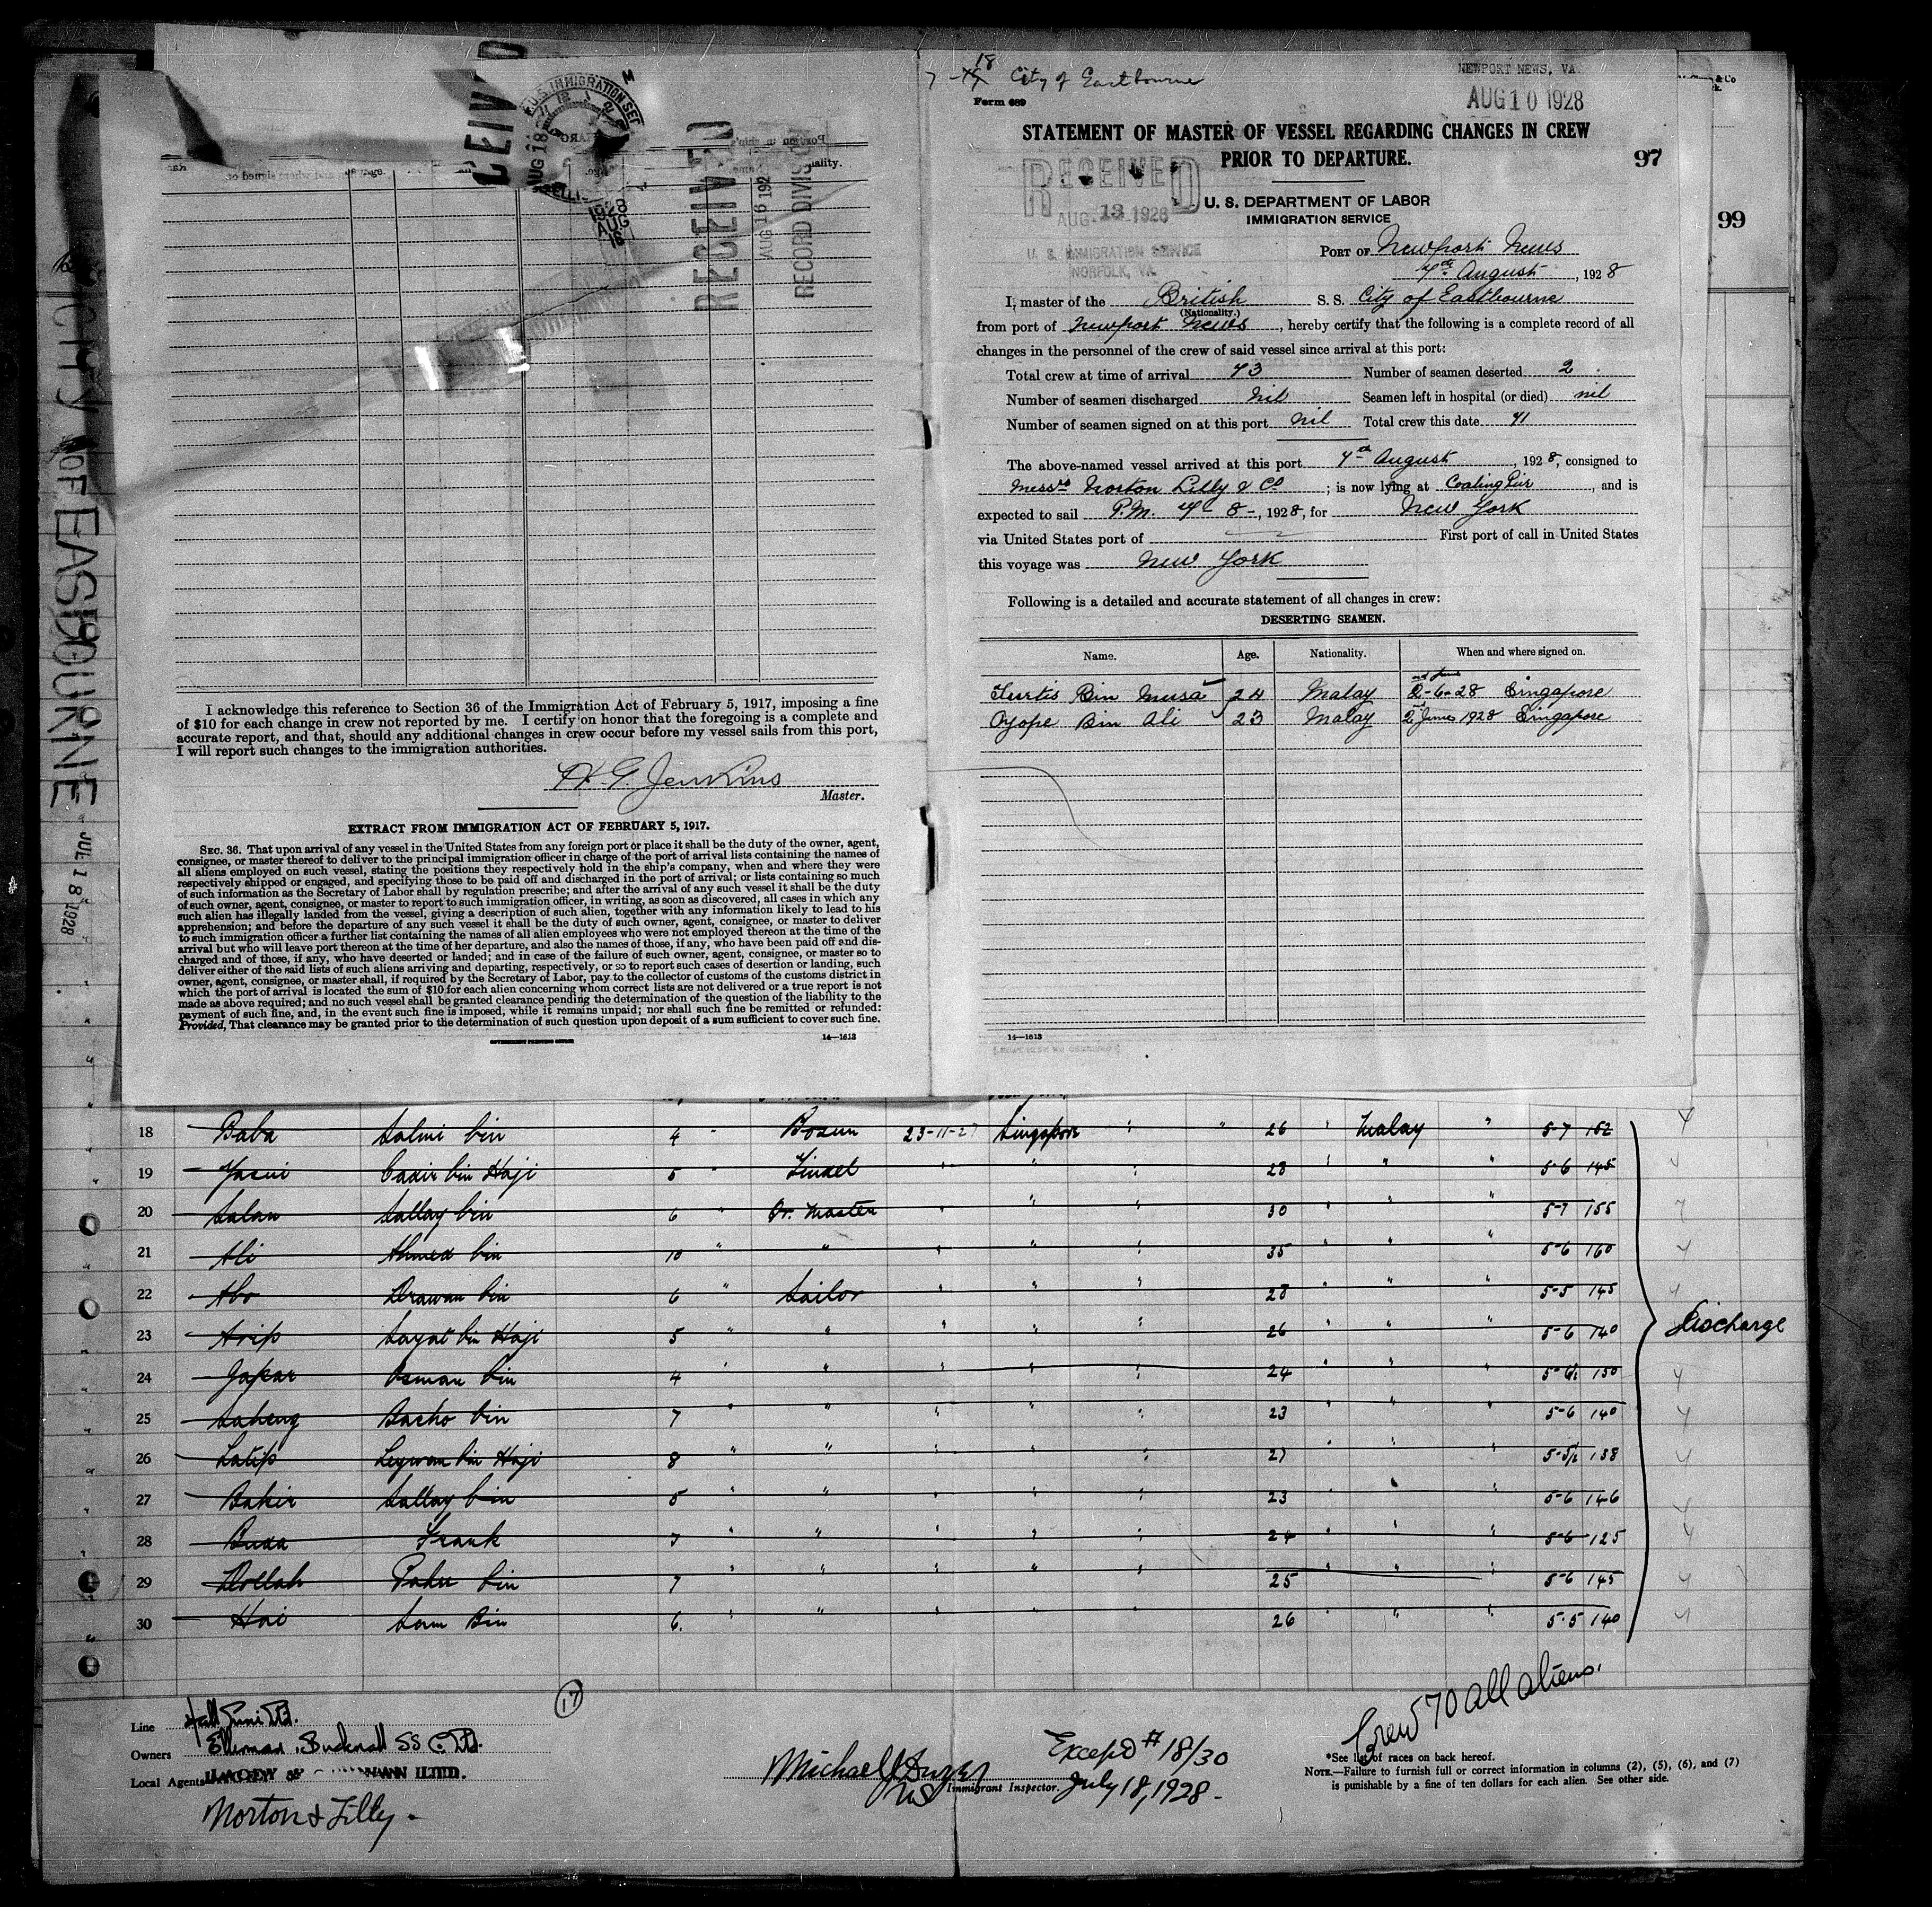 CITY OF EASTBOURNE
JUL 18 1928
RECEIVED
U.S. IMMIGRATION SER
AUG 18
1928
AUG
16
RECEIVED
AUG 16 192
RECORD DIVIS
uality.
I acknowledge this reference to Section 36 of the Immigration Act of February 5, 1917, imposing a fine
of $10 for each change in crew not reported by me. I certify on honor that the foregoing is a complete and
accurate report, and that, should any additional changes in crew occur before my vessel sails from this port,
I will report such changes to the immigration authorities.
H. G. Jenkins
Master.
EXTRACT FROM IMMIGRATION ACT OF FEBRUARY 5, 1917.
SEC. 36. That upon arrival of any vessel in the United States from any foreign port or place it shall be the duty of the owner, agent,
consignee, or master thereof to deliver to the principal immigration officer in charge of the port of arrival lists containing the names of
all aliens employed on such vessel, stating the positions they respectively hold in the ship's company, when and where they were
respectively shipped or engaged, and specifying those to be paid off and discharged in the port of arrival; or lists containing so much
of such information as the Secretary of Labor shall by regulation prescribe; and after the arrival of any such vessel it shall be the duty
of such owner, agent, consignee, or master to report to such immigration officer, in writing, as soon as discovered, all cases in which any
such alien has illegally landed from the vessel, giving a description of such alien, together with any information likely to lead to his
apprehension; and before the departure of any such vessel it shall be the duty of such owner, agent, consignee, or master to deliver
to such immigration officer a further list containing the names of all alien employees who were not employed thereon at the time of the
arrival but who will leave port thereon at the time of her departure, and also the names of those, if any, who have been paid off and dis-
charged and of those, if any, who have deserted or landed; and in case of the failure of such owner, agent, consignee, or master so to
deliver either of the said lists of such aliens arriving and departing, respectively, or so to report such cases of desertion or landing, such
owner, agent, consignee, or master shall, if required by the Secretary of Labor, pay to the collector of customs of the customs district in
which the port of arrival is located the sum of $10 for each alien concerning whom correct lists are not delivered or a true report is not
made as above required; and no such vessel shall be granted clearance pending the determination of the question of the liability to the
payment of such fine, and, in the event such fine is imposed, while it remains unpaid; nor shall such fine be remitted or refunded:
Provided, That clearance may be granted prior to the determination of such question upon deposit of a sum sufficient to cover such fine.
GOVERNMENT PRINTING OFFICE
14—1613
18
City of Eastbourne
NEWPORT NEWS, VA.
AUG 10 1928
Form 689
STATEMENT OF MASTER OF VESSEL REGARDING CHANGES IN CREW
PRIOR TO DEPARTURE.
97
99
RECEIVED
AUG. 13 1928
U. S. IMMIGRATION SERVICE
NORFOLK, VA.
U. S. DEPARTMENT OF LABOR
IMMIGRATION SERVICE
PORT OF Newport News
7th August, 1928
I, master of the British S. S. City of Eastbourne
(Nationality.)
from port of Newport News, hereby certify that the following is a complete record of all
changes in the personnel of the crew of said vessel since arrival at this port:
Total crew at time of arrival 73 Number of seamen deserted 2
Number of seamen discharged nil Seamen left in hospital (or died) nil
Number of seamen signed on at this port nil Total crew this date 71
The above-named vessel arrived at this port 7th August, 1928, consigned to
Messrs Norton Lilly & Co; is now lying at Coaling Pier, and is
expected to sail P.M. 7-8-, 1928, for New York
via United States port of First port of call in United States
this voyage was New York
Following is a detailed and accurate statement of all changes in crew:
DESERTING SEAMEN.
Name. Age. Nationality. When and where signed on.
Bin Musa 24 Malay 2-6-28 Singapore
Oyope Bin Ali 23 Malay 2nd June 1928 Singapore
14—1613
18 Baba Salmi bin 4 " Bosun 23-11-27 Singapore " " 26 " Malay " 5-7 152
19 Yasui Cadir bin Haji 5 " Tindel " " " 28 " " " 5-6 145
20 Salan Sallay bin 6 " Qr. Master " " " 30 " " " 5-7 155
21 Ali Ahmed bin 10 " " " " " 35 " " " 5-6 160
22 Abo Drawan bin 6 " Sailor " " " 28 " " " 5-5 145
23 Arip Sayat bin Haji 5 " " " " " 26 " " " 5-6 140
24 Gapar Osman bin 4 " " " " " 24 " " " 5-6½ 150
25 Saheng Bacho bin 7 " " " " " 23 " " " 5-6 140
26 Latip Leywan bin Haji 8 " " " " " 27 " " " 5-5½ 138
27 Bakir Sallay bin 5 " " " " " 23 " " " 5-6 146
28 Buda Frank 7 " " " " " 24 " " " 5-6 125
29 Dollah Pahu bin 7 " " " " " 25 " " " 5-6 145
30 Hai Sam Bin 6. " " " " " 26 " " " 5-5 140
Discharge
17
Line Hall Line Ltd.
Owners Ellerman, Bucknall SS Co. Ltd.
Local Agents
Norton & Lilly
Michael J Dwyer
US Immigrant Inspector.
Except # 18/30
July 18, 1928
Crew 70 all aliens.
*See list of races on back hereof.
NOTE.—Failure to furnish full or correct information in columns (2), (5), (6), and (7)
is punishable by a fine of ten dollars for each alien. See other side.